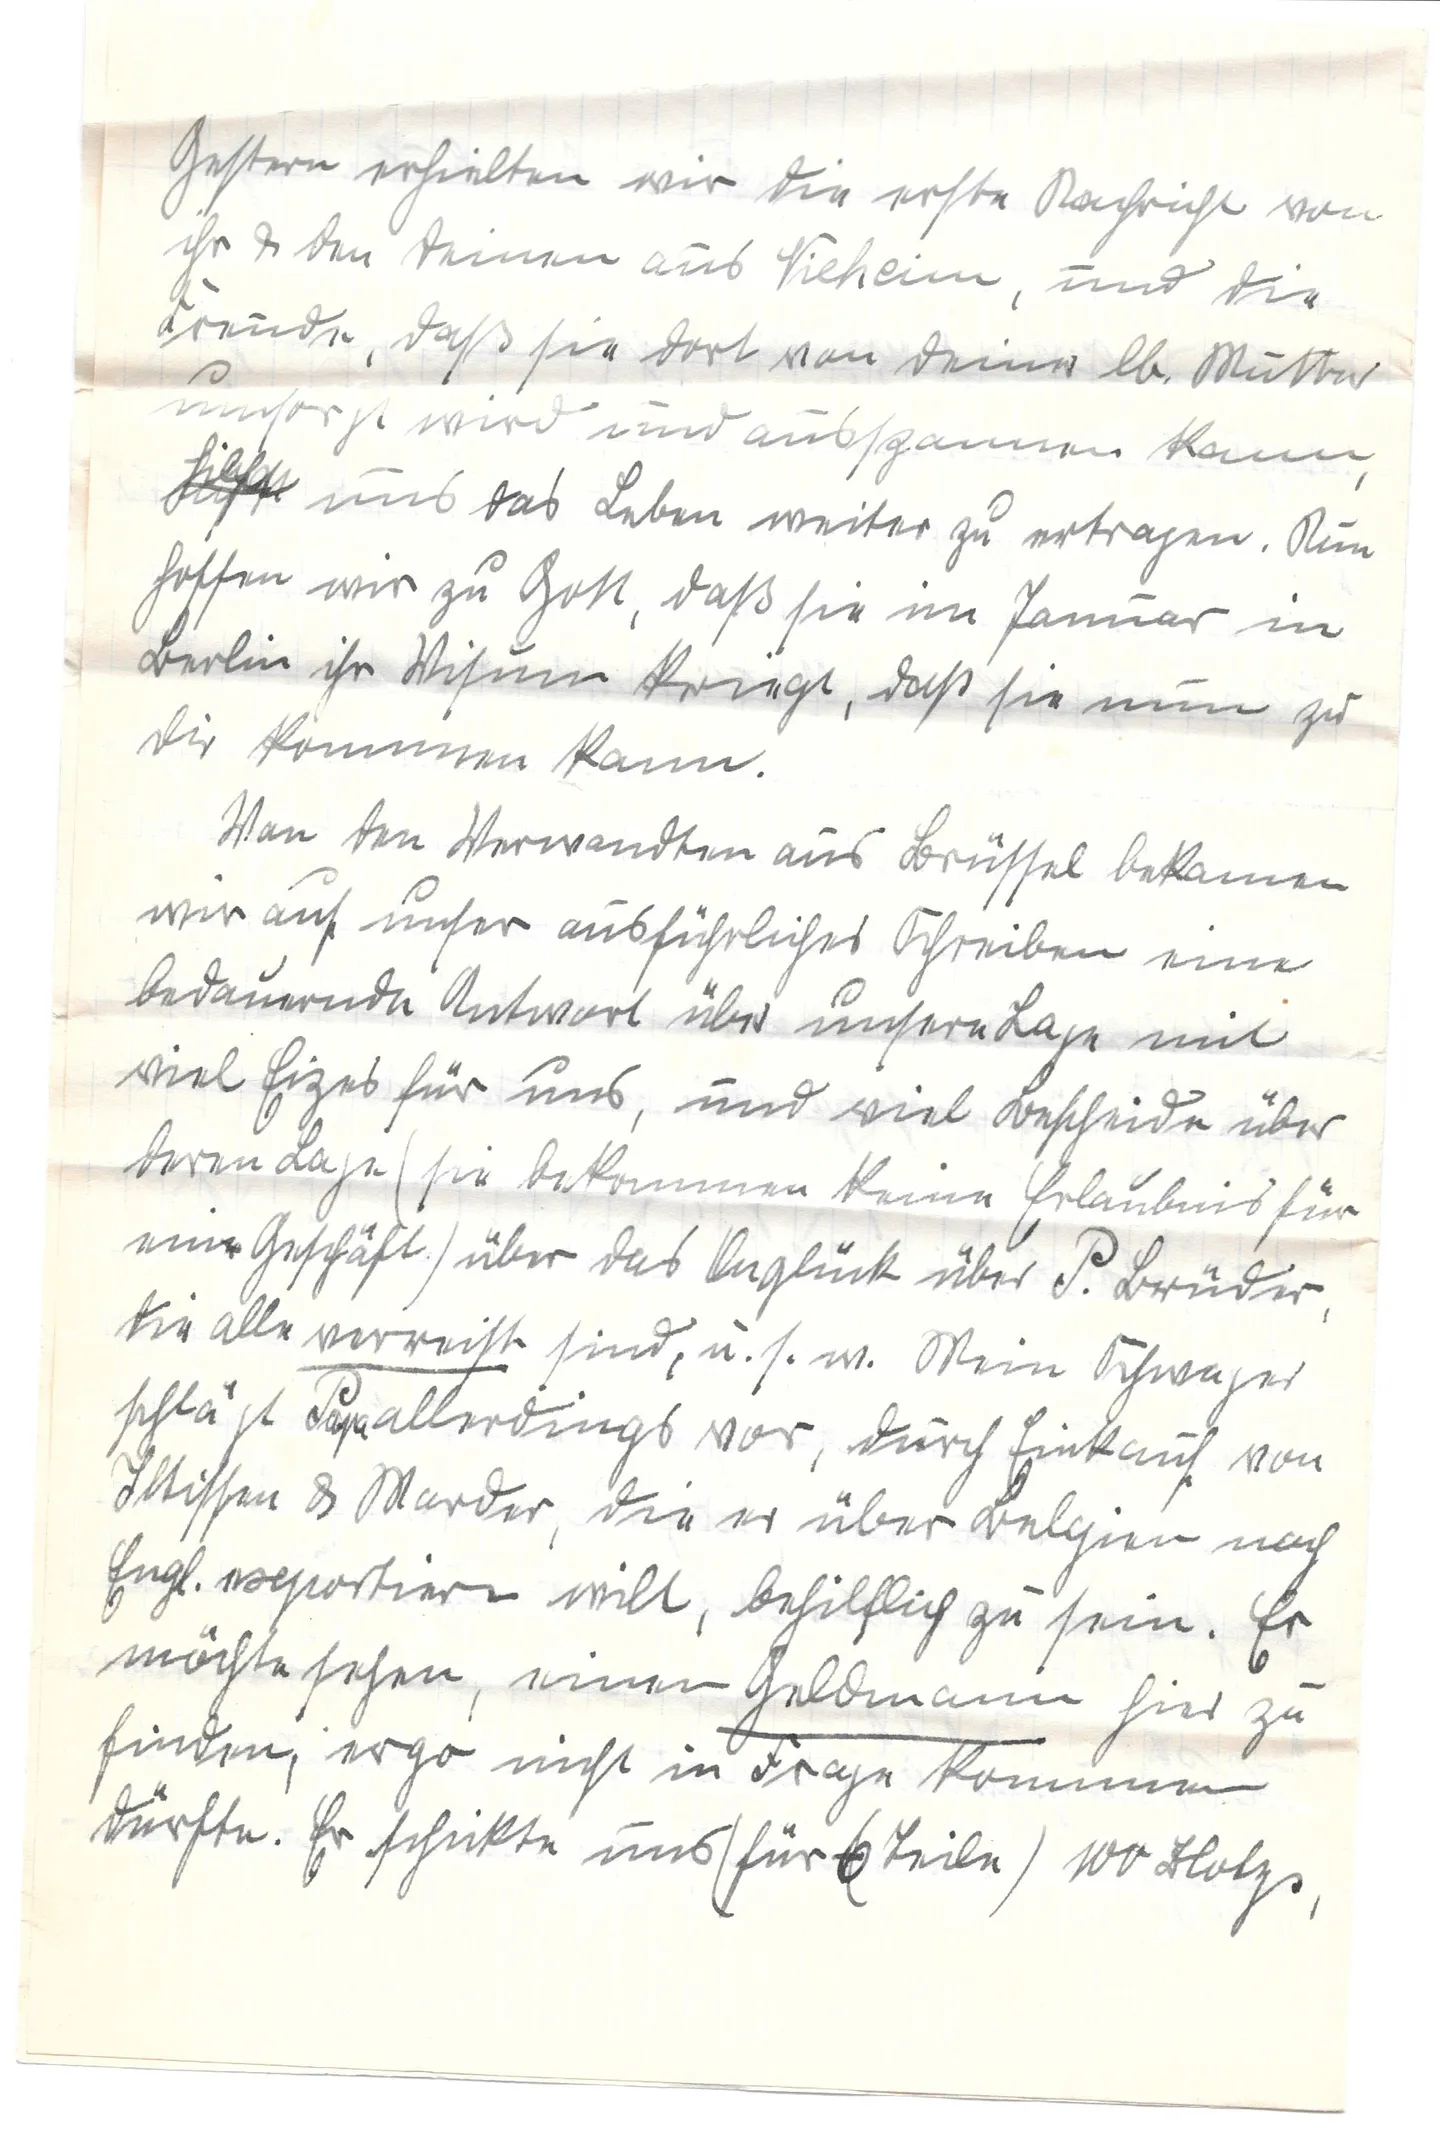 Gestern erhielten wir die erste Nachricht von
ihr & den deinen aus Nieheim, und die
Freude, daß sie dort von deiner lb. Mutter
umsorgt wird und ausspannen kann,
hilft uns das Leben weiter zu ertragen. Nun
hoffen wir zu Gott, daß sie im Januar in
Berlin ihr Visum kriegt, daß sie nun zu
dir kommen kann.
Von den Verwandten aus Brüssel bekamen
wir auf unser ausführliches Schreiben eine
bedauernde Antwort über unsere Lage mit
viel Eizes für uns, und viel Bescheide über
deren Lage (sie bekommen keine Erlaubnis für
ein Geschäft) über das Unglück über P. Brüder,
die alle verreist sind, u. s. w. Mein Schwager
schlägt Papa allerdings vor, durch Einkauf von
Iltissen & Marder, die er über Belgien nach
Engl. exportieren will, behilflich zu sein. Er
möchte sehen, einen Geldmann hier zu
finden, ergo nicht in Frage kommen
dürfte. Er schickte uns (für 6 Teile) 100 Zlotys,